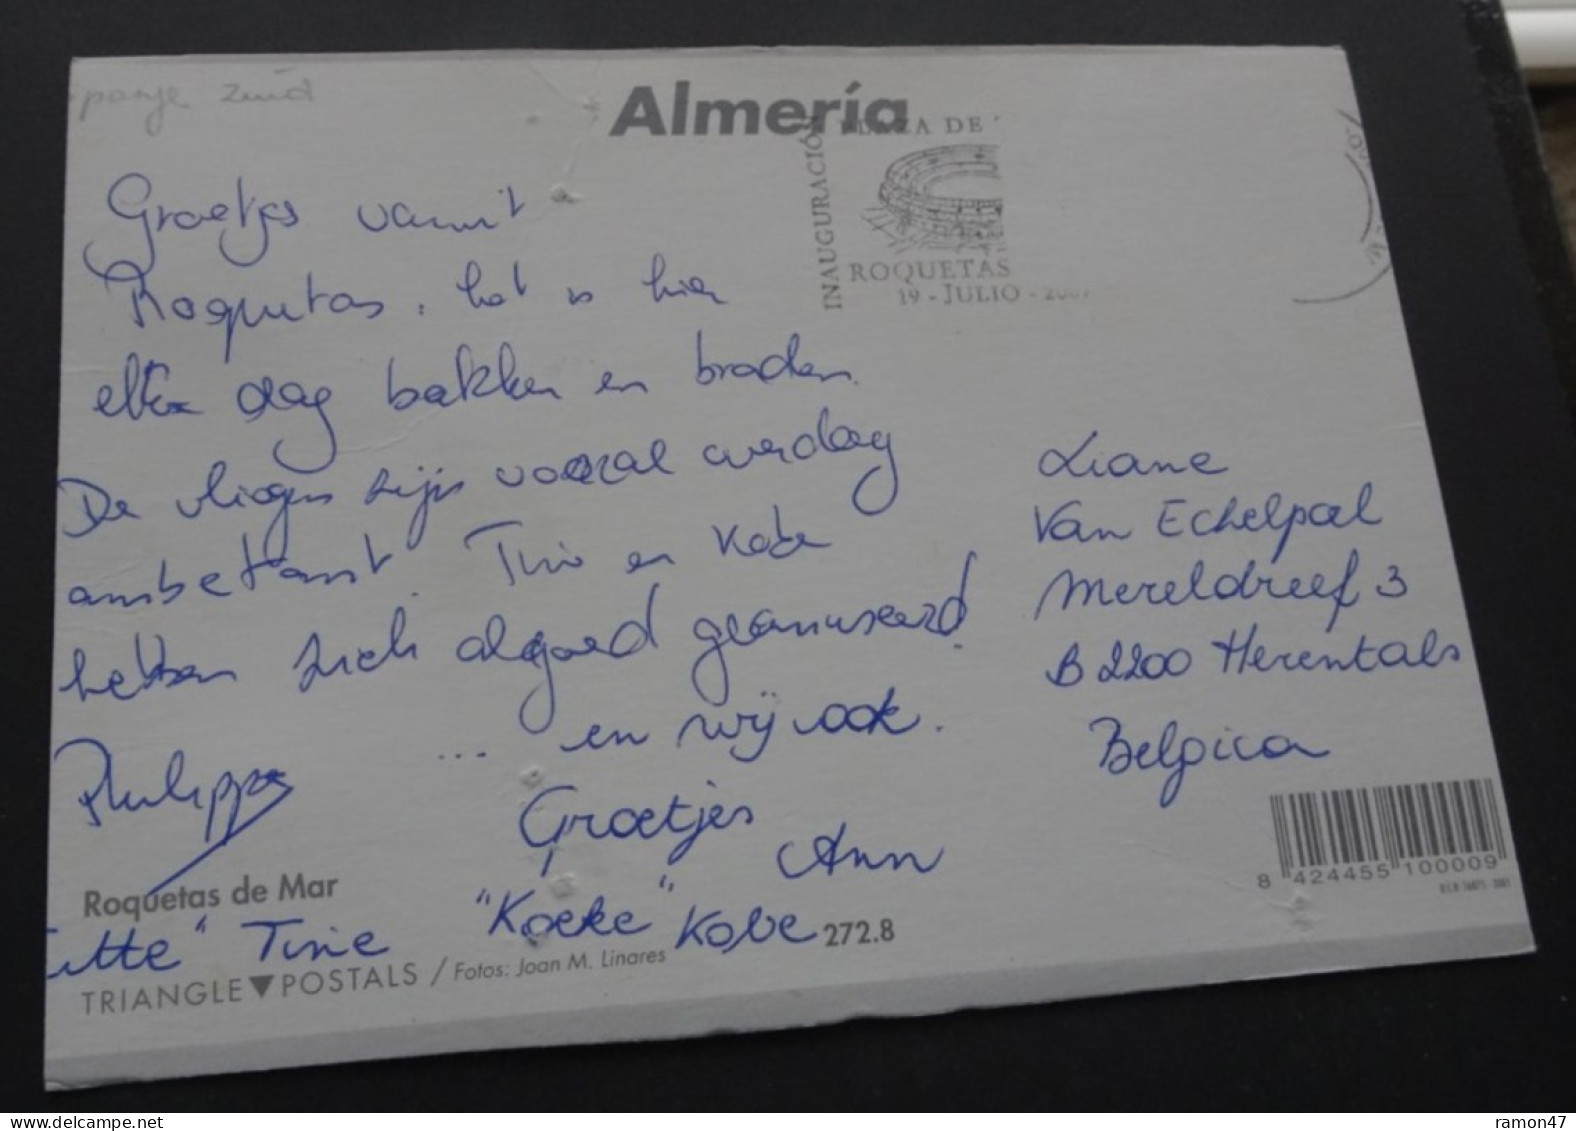 panje zuid
Almería
INAUGURACIÓN PLAZA DE
ROQUETAS
19 - JULIO - 200
Groetjes vanuit
Roquetas, het is hier
elke dag bakken en braden.
De vliegen zijn vooral overdag
ambetant. Tine en Kobe
hebben zich algoed geamuseerd.
... en wij ook.
Philippe
Groetjes
Ann
Liane
Van Echelpoel
Mereldreef 3
B 2200 Herentals
Belgica
8 424455 100009
Roquetas de Mar
itte" Tine "Koeke" Kobe 272.8
TRIANGLE▼POSTALS / Fotos: Joan M. Linares
delcampe.net
ramon47